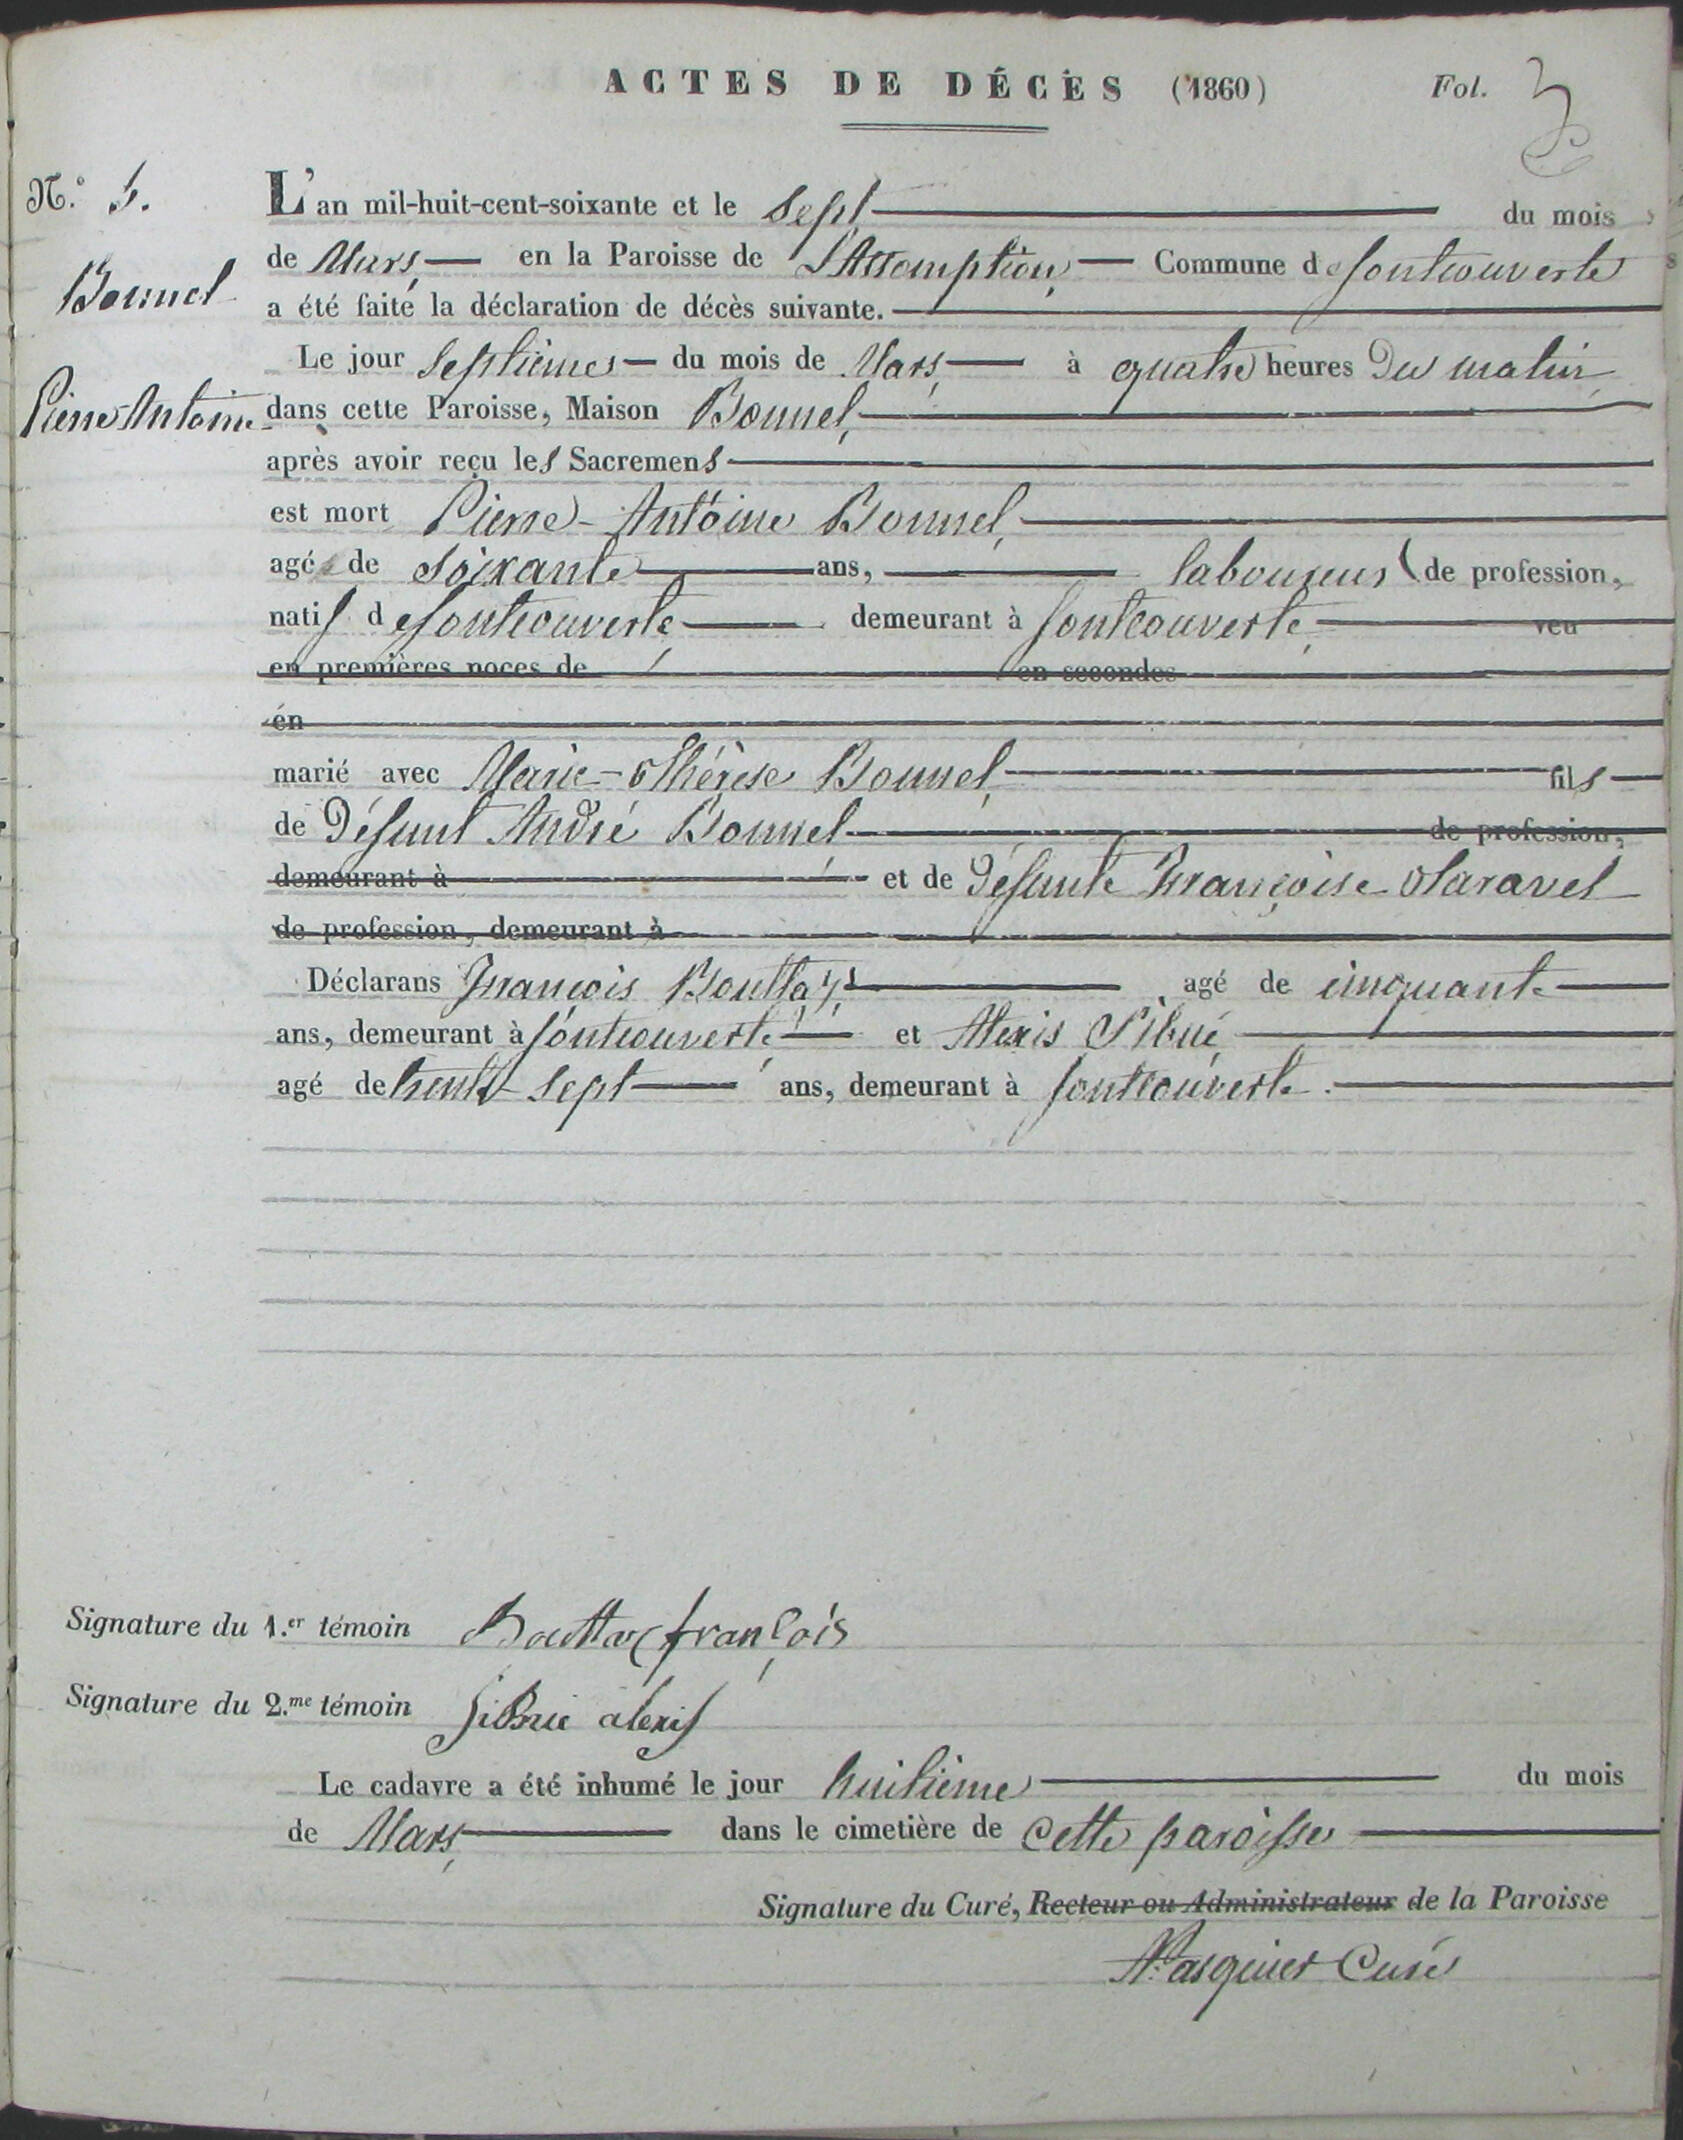 ACTES DE DÉCÈS (1860) Fol. 3
N.° 5.
L'an mil-huit-cent-soixante et le Sept du mois
de Mars en la Paroisse de L'Assomption, Commune de fontcouverte
Bonnel
a été faite la déclaration de décès suivante.
Le jour Septième du mois de Mars, à quatre heures Du matin
Pierre Antoine
dans cette Paroisse, Maison Bonnel,
après avoir reçu les Sacremens
est mort Pierre-Antoine Bonnel,
agé de soixante ans, laboureur de profession,
natif de fontcouverte, demeurant à fontcouverte, veu
en premières noces de en secondes
en
marié avec Marie-Thérèse Bonnel, fils
de Défunt André Bonnel de profession,
demeurant à et de Défunte Françoise Taravel
de profession, demeurant à
Déclarans François Bouttaz, agé de cinquante
ans, demeurant à fontcouverte et Alexis Sibué,
agé de trente sept ans, demeurant à fontcouverte.
Signature du 1.er témoin Bouttaz françois
Signature du 2.me témoin Sibué alexis
Le cadavre a été inhumé le jour huitième du mois
de Mars, dans le cimetière de cette paroisse
Signature du Curé, Recteur ou Administrateur de la Paroisse
Pasquier Curé